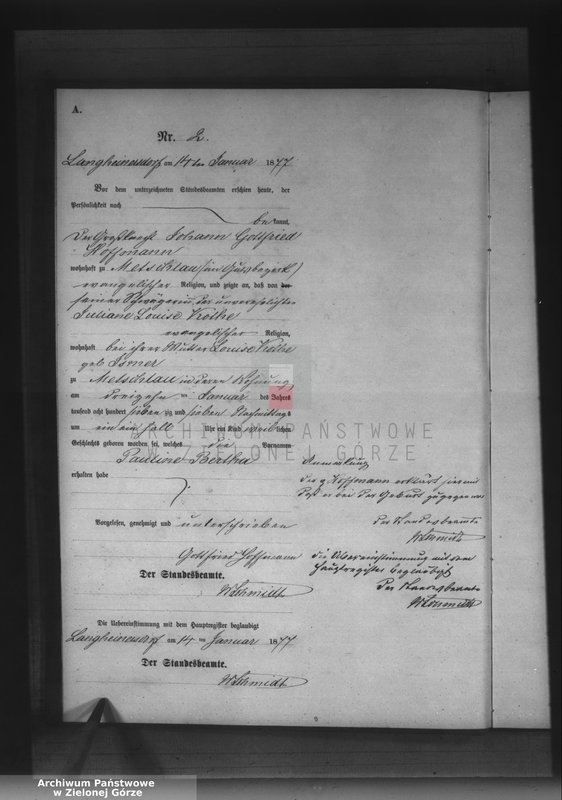 A.
Nr. 2.
Langheinersdorf am 14ten Januar 1877
Vor dem unterzeichneten Standesbeamten erschien heute, der
Persönlichkeit nach
be kannt,
Der Großknecht Johann Gottfried
Hoffmann
wohnhaft zu Metschlau (im Gutsbezirk)
evangelischer Religion, und zeigte an, daß von der
seiner Schwägerin, der unverehelichten
Juliane Louise Kothe
evangelischer Religion,
wohnhaft bei ihrer Mutter Louise Kothe
geb
zu Metschlau in deren Wohnung
am dreizehn ten Januar des Jahres
tausend acht hundert sieben zig und sieben Nachmittags
um ein ein halb Uhr ein Kind weib lichen
Geschlechts geboren worden sei, welches die Vornamen
Pauline Bertha
erhalten habe
Vorgelesen, genehmigt und unterschrieben
Gottfried Hoffmann
Der Standesbeamte.
W Schmidt
Die Uebereinstimmung mit dem Hauptregister beglaubigt
Langheinersdorf am 14 ten Januar 1877
Der Standesbeamte.
W Schmidt
Anmerkung
Der g. Hoffmann erklärt hiermit
daß er bei der Geburt zugegen war
Der Standesbeamte
W Schmidt
Die Übereinstimmung mit dem
Hauptregister beglaubigt
Der Standesbeamte
W Schmidt
ARCHIWUM PAŃSTWOWE
W ZIELONEJ GÓRZE
Archiwum Państwowe
w Zielonej Górze